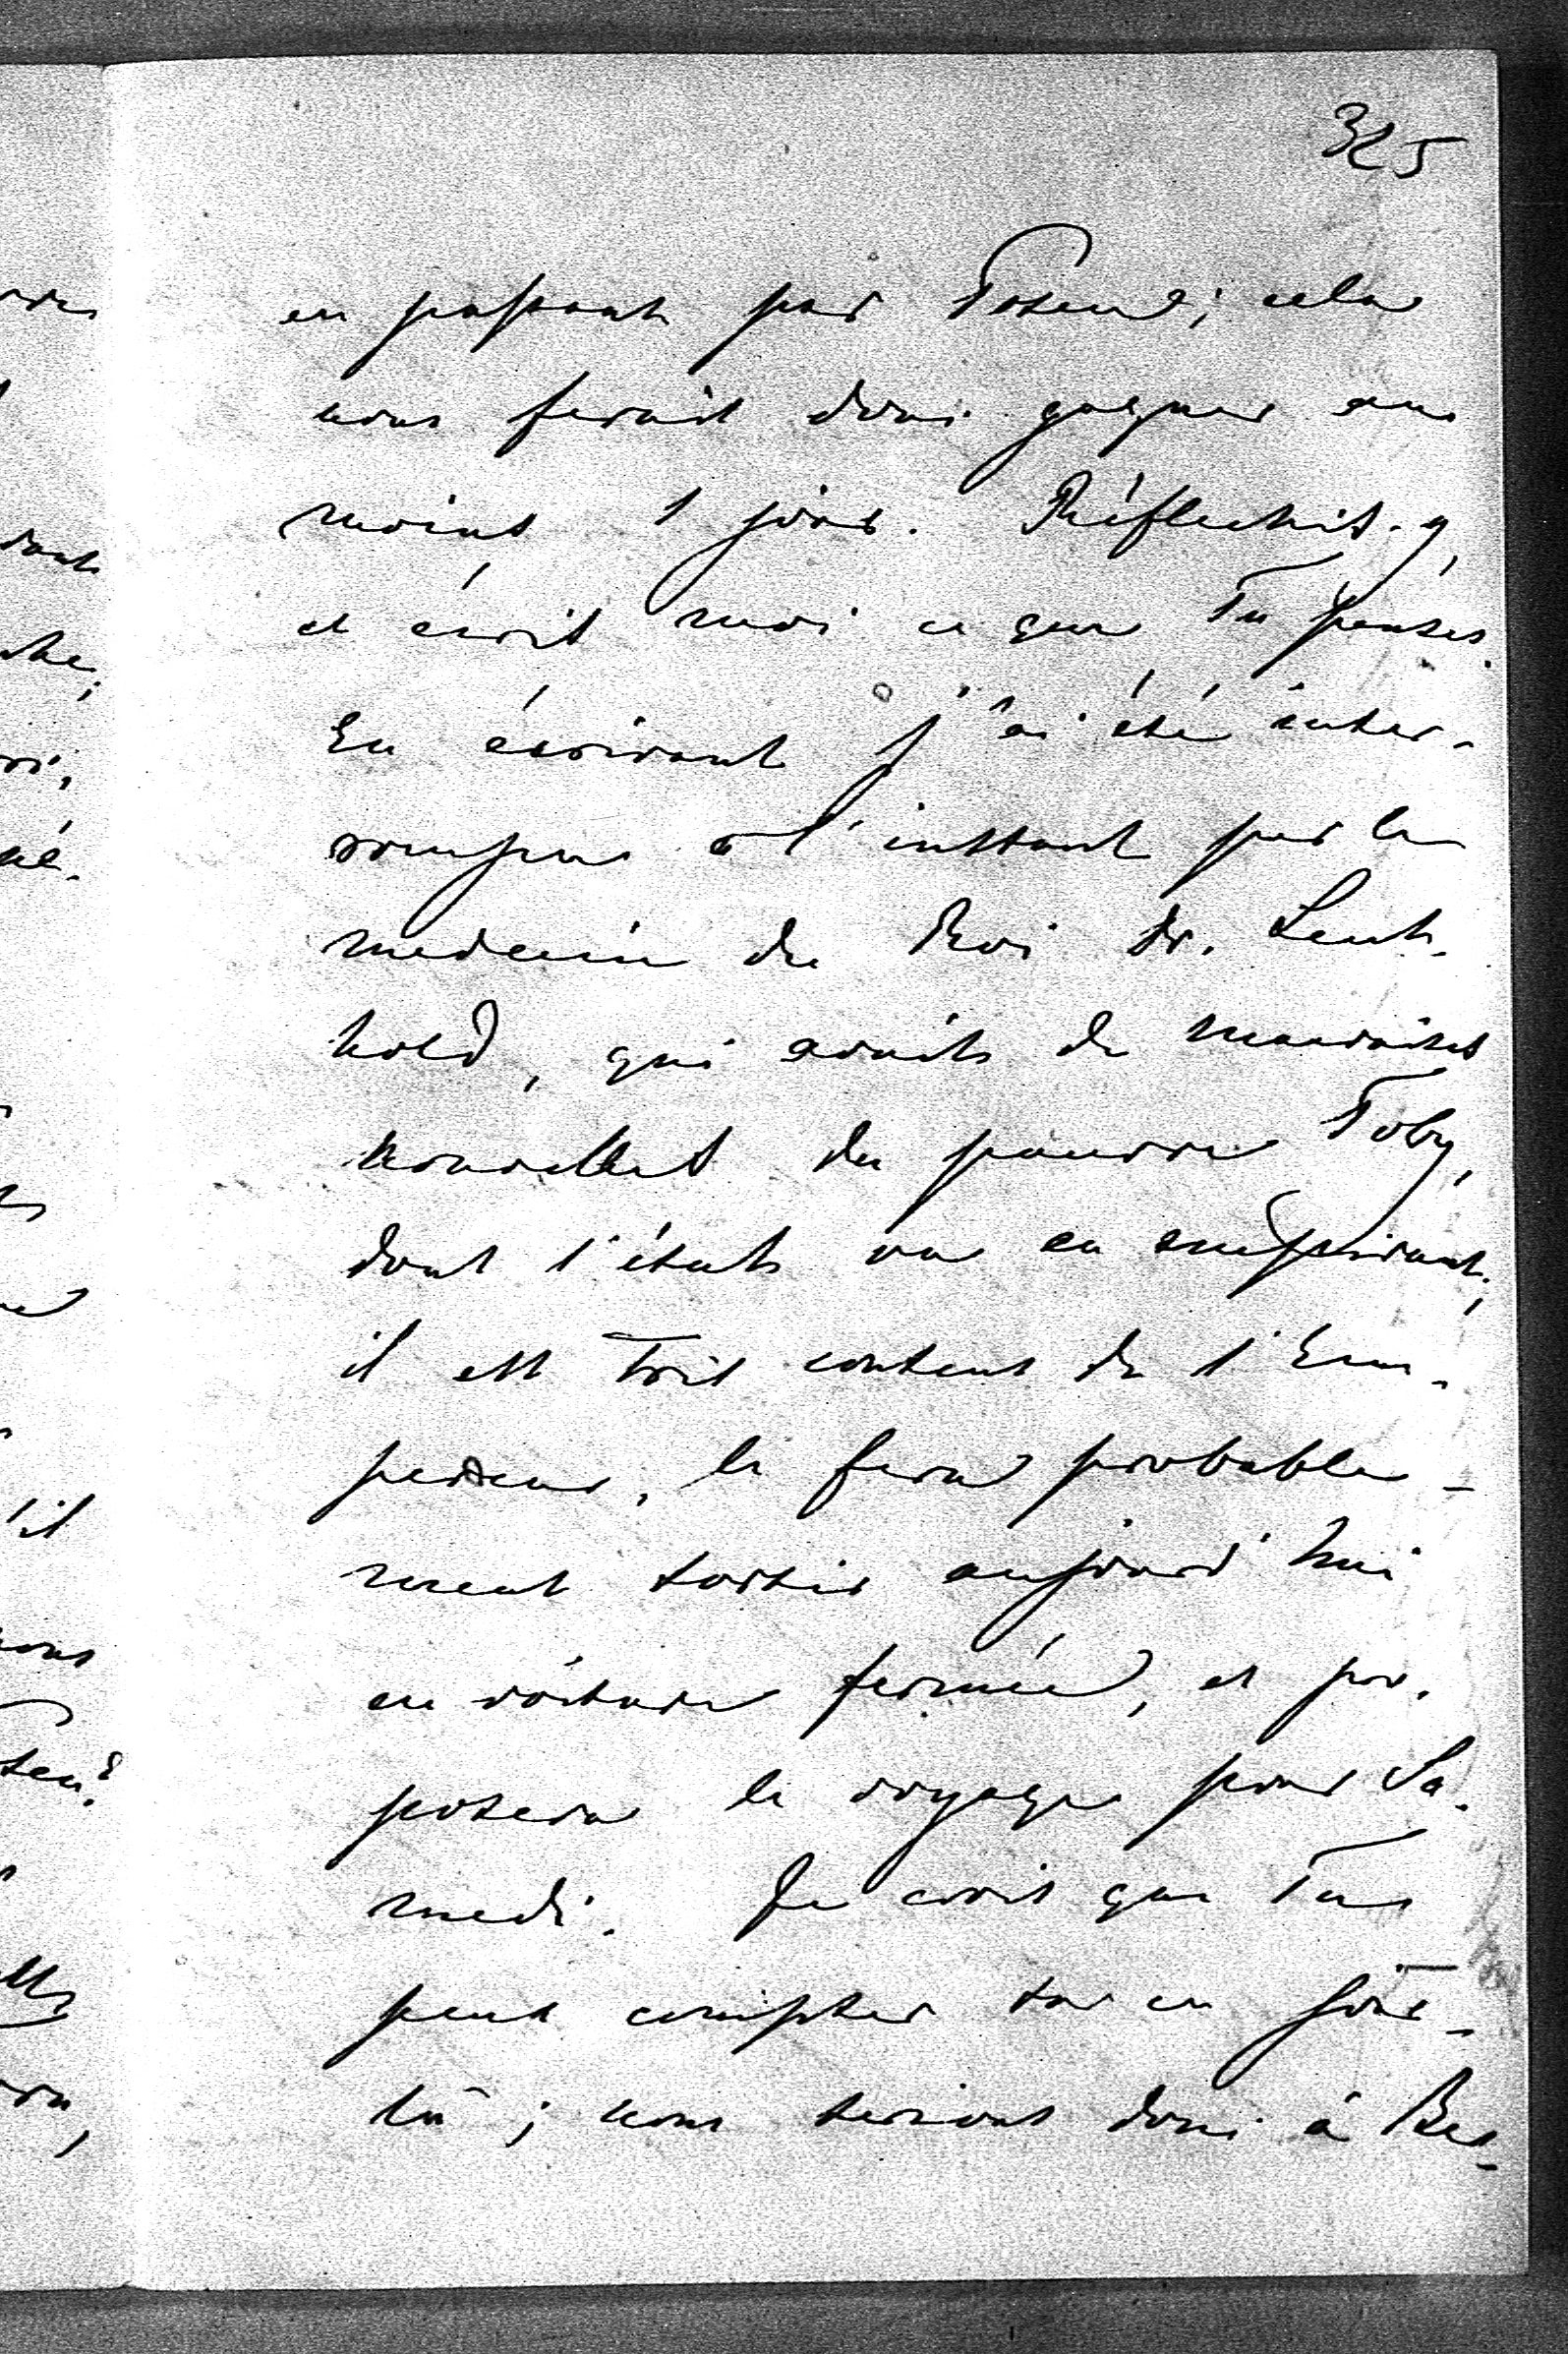 325
en passant par Posen; cela
nous ferait donc gagner au
moins 1 jour. Réflechis-y,
et écris moi ce que Tu penses.
En écrivant j'ai été inter-
rompu à l'instant par le
medecin du Roi Dr. Leut-
hold, qui avait de mauvaises
nouvelles du pauvre Toby,
dont l'état va en empirant;
il est très content de l'Em-
pereur, le fera probable-
ment sortir aujourd'hui
en voiture fermée, et pro-
posera le voyage pour Sa-
medi. Je crois que Tu
peux compter sur ce jour-
là; nous serions donc à Ber-